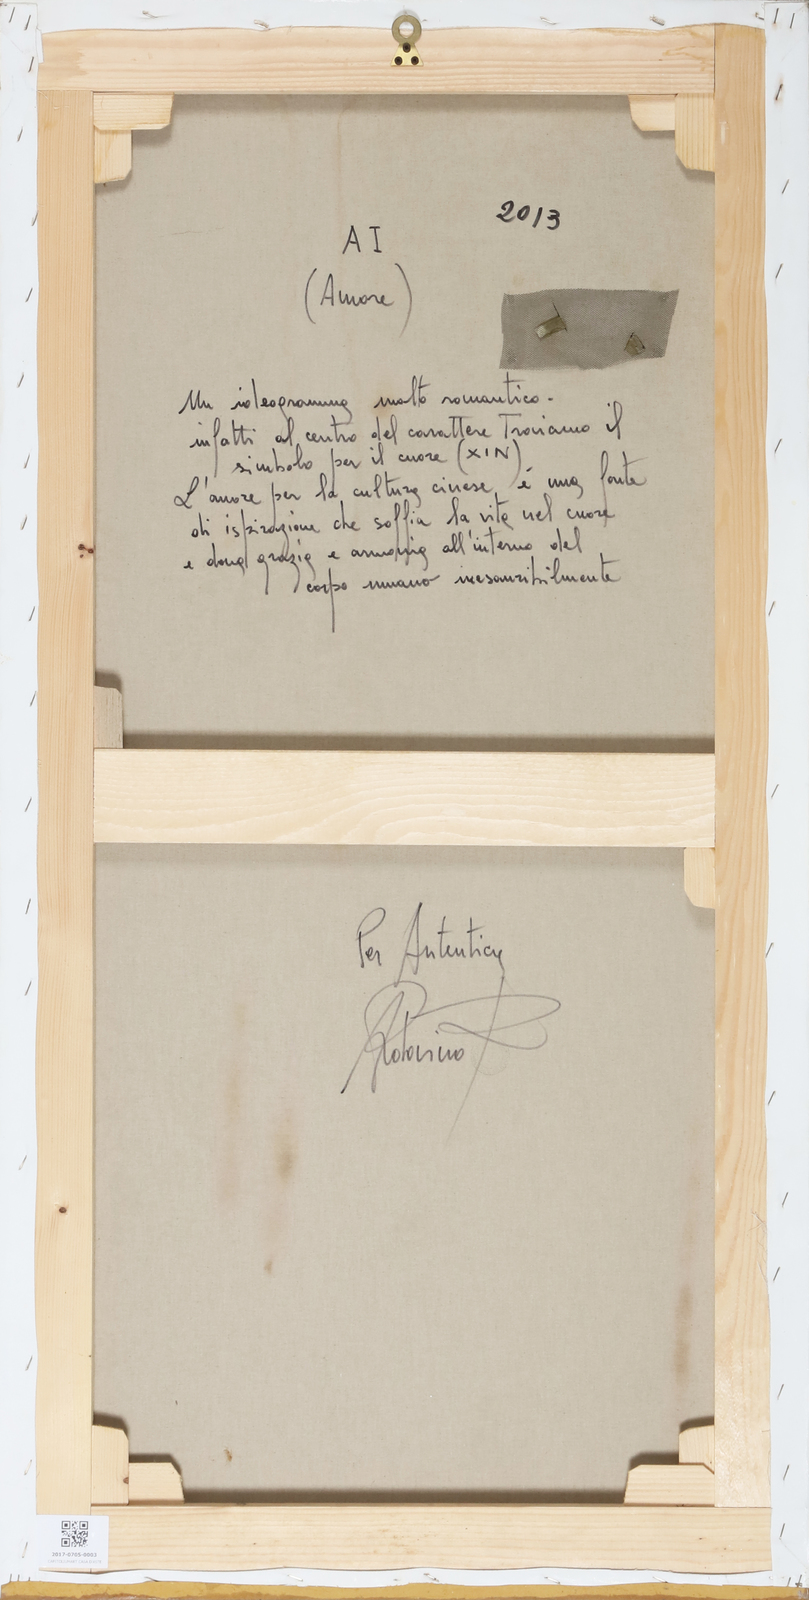 2013
AI
(Amore)
Un ideogramma molto romantico -
infatti al centro del carattere Troviamo il
simbolo per il cuore (XIN)
L'amore per la cultura cinese é una fonte
di ispirazione che soffia la vita nel cuore
e dona grazia e armonia all'interno del
corpo umano inesauribilmente
Per Autentica
3017-0705-0003